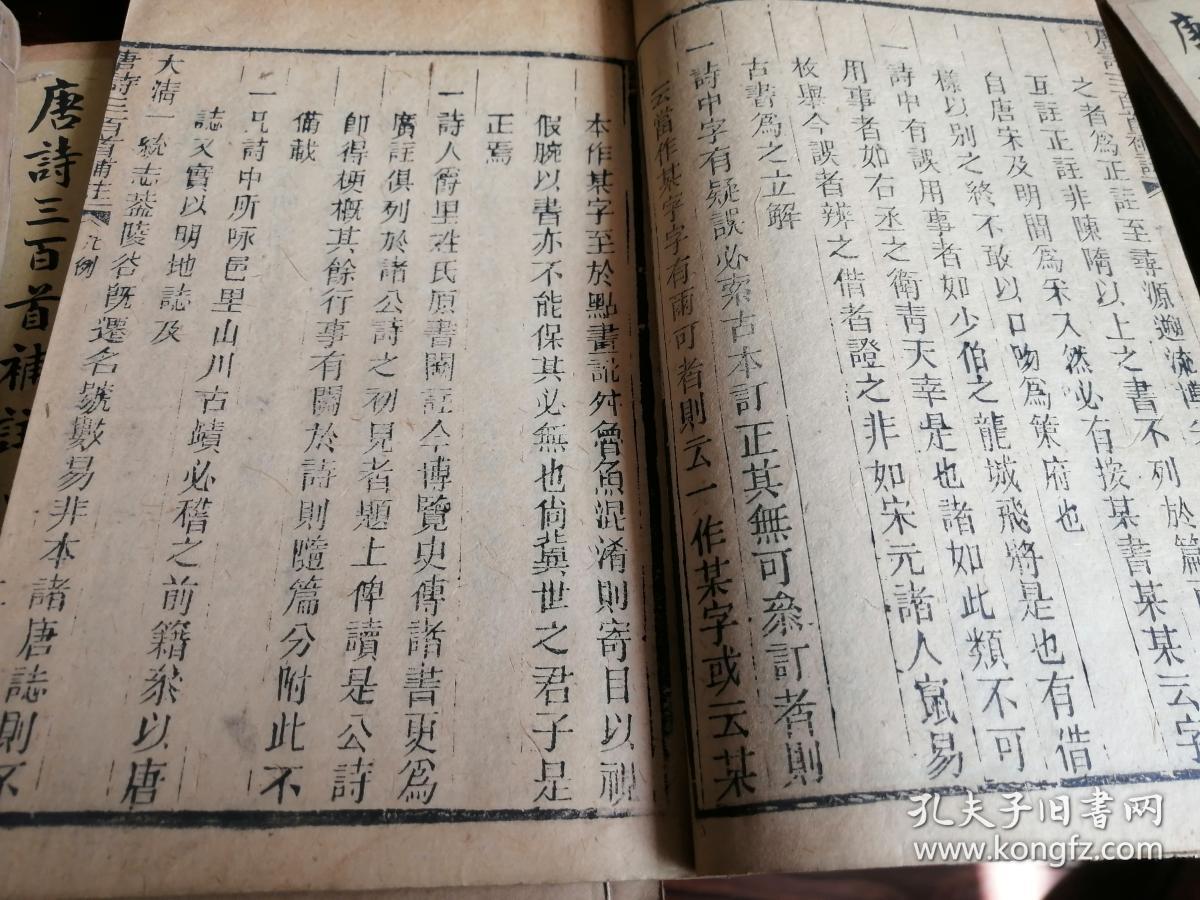 之者為正註至尋源遡流
互註正註非陳隋以上之書不列於篇
自唐宋及明間為宋入然必有按某書某某云字
樣以別之終不敢以口吻為策府也
一詩中有誤用事者如少伯之龍城飛將是也有借
用事者如右丞之衛青天幸是也諸如此類不可
枚舉今誤者辨之借者證之非如宋元諸人竄易
古書為之立解
一詩中字有疑誤必索古本訂正其無可叅訂者則
云當作某字字有兩可者則云一作某字或云某
本作某字至於點畫訛舛魯魚混淆則寄目以視
假腕以書亦不能保其必無也尚冀世之君子是
正焉
一詩人爵里姓氏原書闕註今博覽史傳諸書更為
廣註俱列於諸公詩之初見者題上俾讀是公詩
即得梗概其餘行事有關於詩則隨篇分附此不
備載
一凡詩中所咏邑里山川古蹟必稽之前籍叅以唐
誌又實以明地誌及
大清一統志葢陵谷既遷名號數易非本諸唐誌則不
唐詩三百首補註
凡例
唐詩三百首補註
唐詩三百首補註
唐
孔夫子旧书网
www.kongfz.com